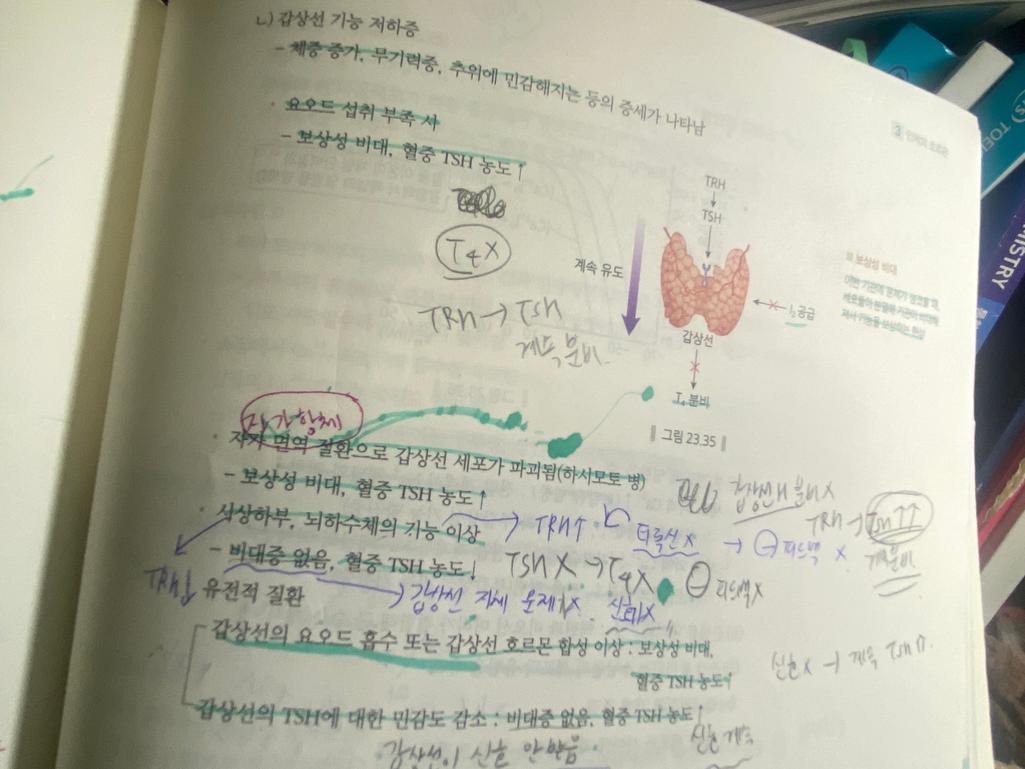 ㄴ) 갑상선 기능 저하증
- 체중 증가, 무기력증, 추위에 민감해지는 등의 증세가 나타남
· 요오드 섭취 부족 시
- 보상성 비대, 혈중 TSH 농도↑
T4X
TRH → TSH
계속 분비
3 인체의 호르몬
TRH
TSH
계속 유도
I₂공급
갑상선
T₄ 분비
‖ 그림 23.35 ‖
보상성 비대
자가항체
· 자가 면역 질환으로 갑상선 세포가 파괴됨(하시모토 병)
- 보상성 비대, 혈중 TSH 농도↑
갑상선H 분비X
TRH → TSH↑↑
· 시상하부, 뇌하수체의 기능 이상
TRH↑
티록신X → ⊖피드백 X
- 비대증 없음, 혈중 TSH 농도↓
TSH X → T4X ⊖ 피드백X
TRH↓
· 유전적 질환
갑상선 자체 문제X
갑상선의 요오드 흡수 또는 갑상선 호르몬 합성 이상 : 보상성 비대,
혈중 TSH 농도↑
신호X → 계속 TSH↑
갑상선의 TSH에 대한 민감도 감소 : 비대증 없음, 혈중 TSH 농도↑
갑상선이 신호 안받음
신호 계속